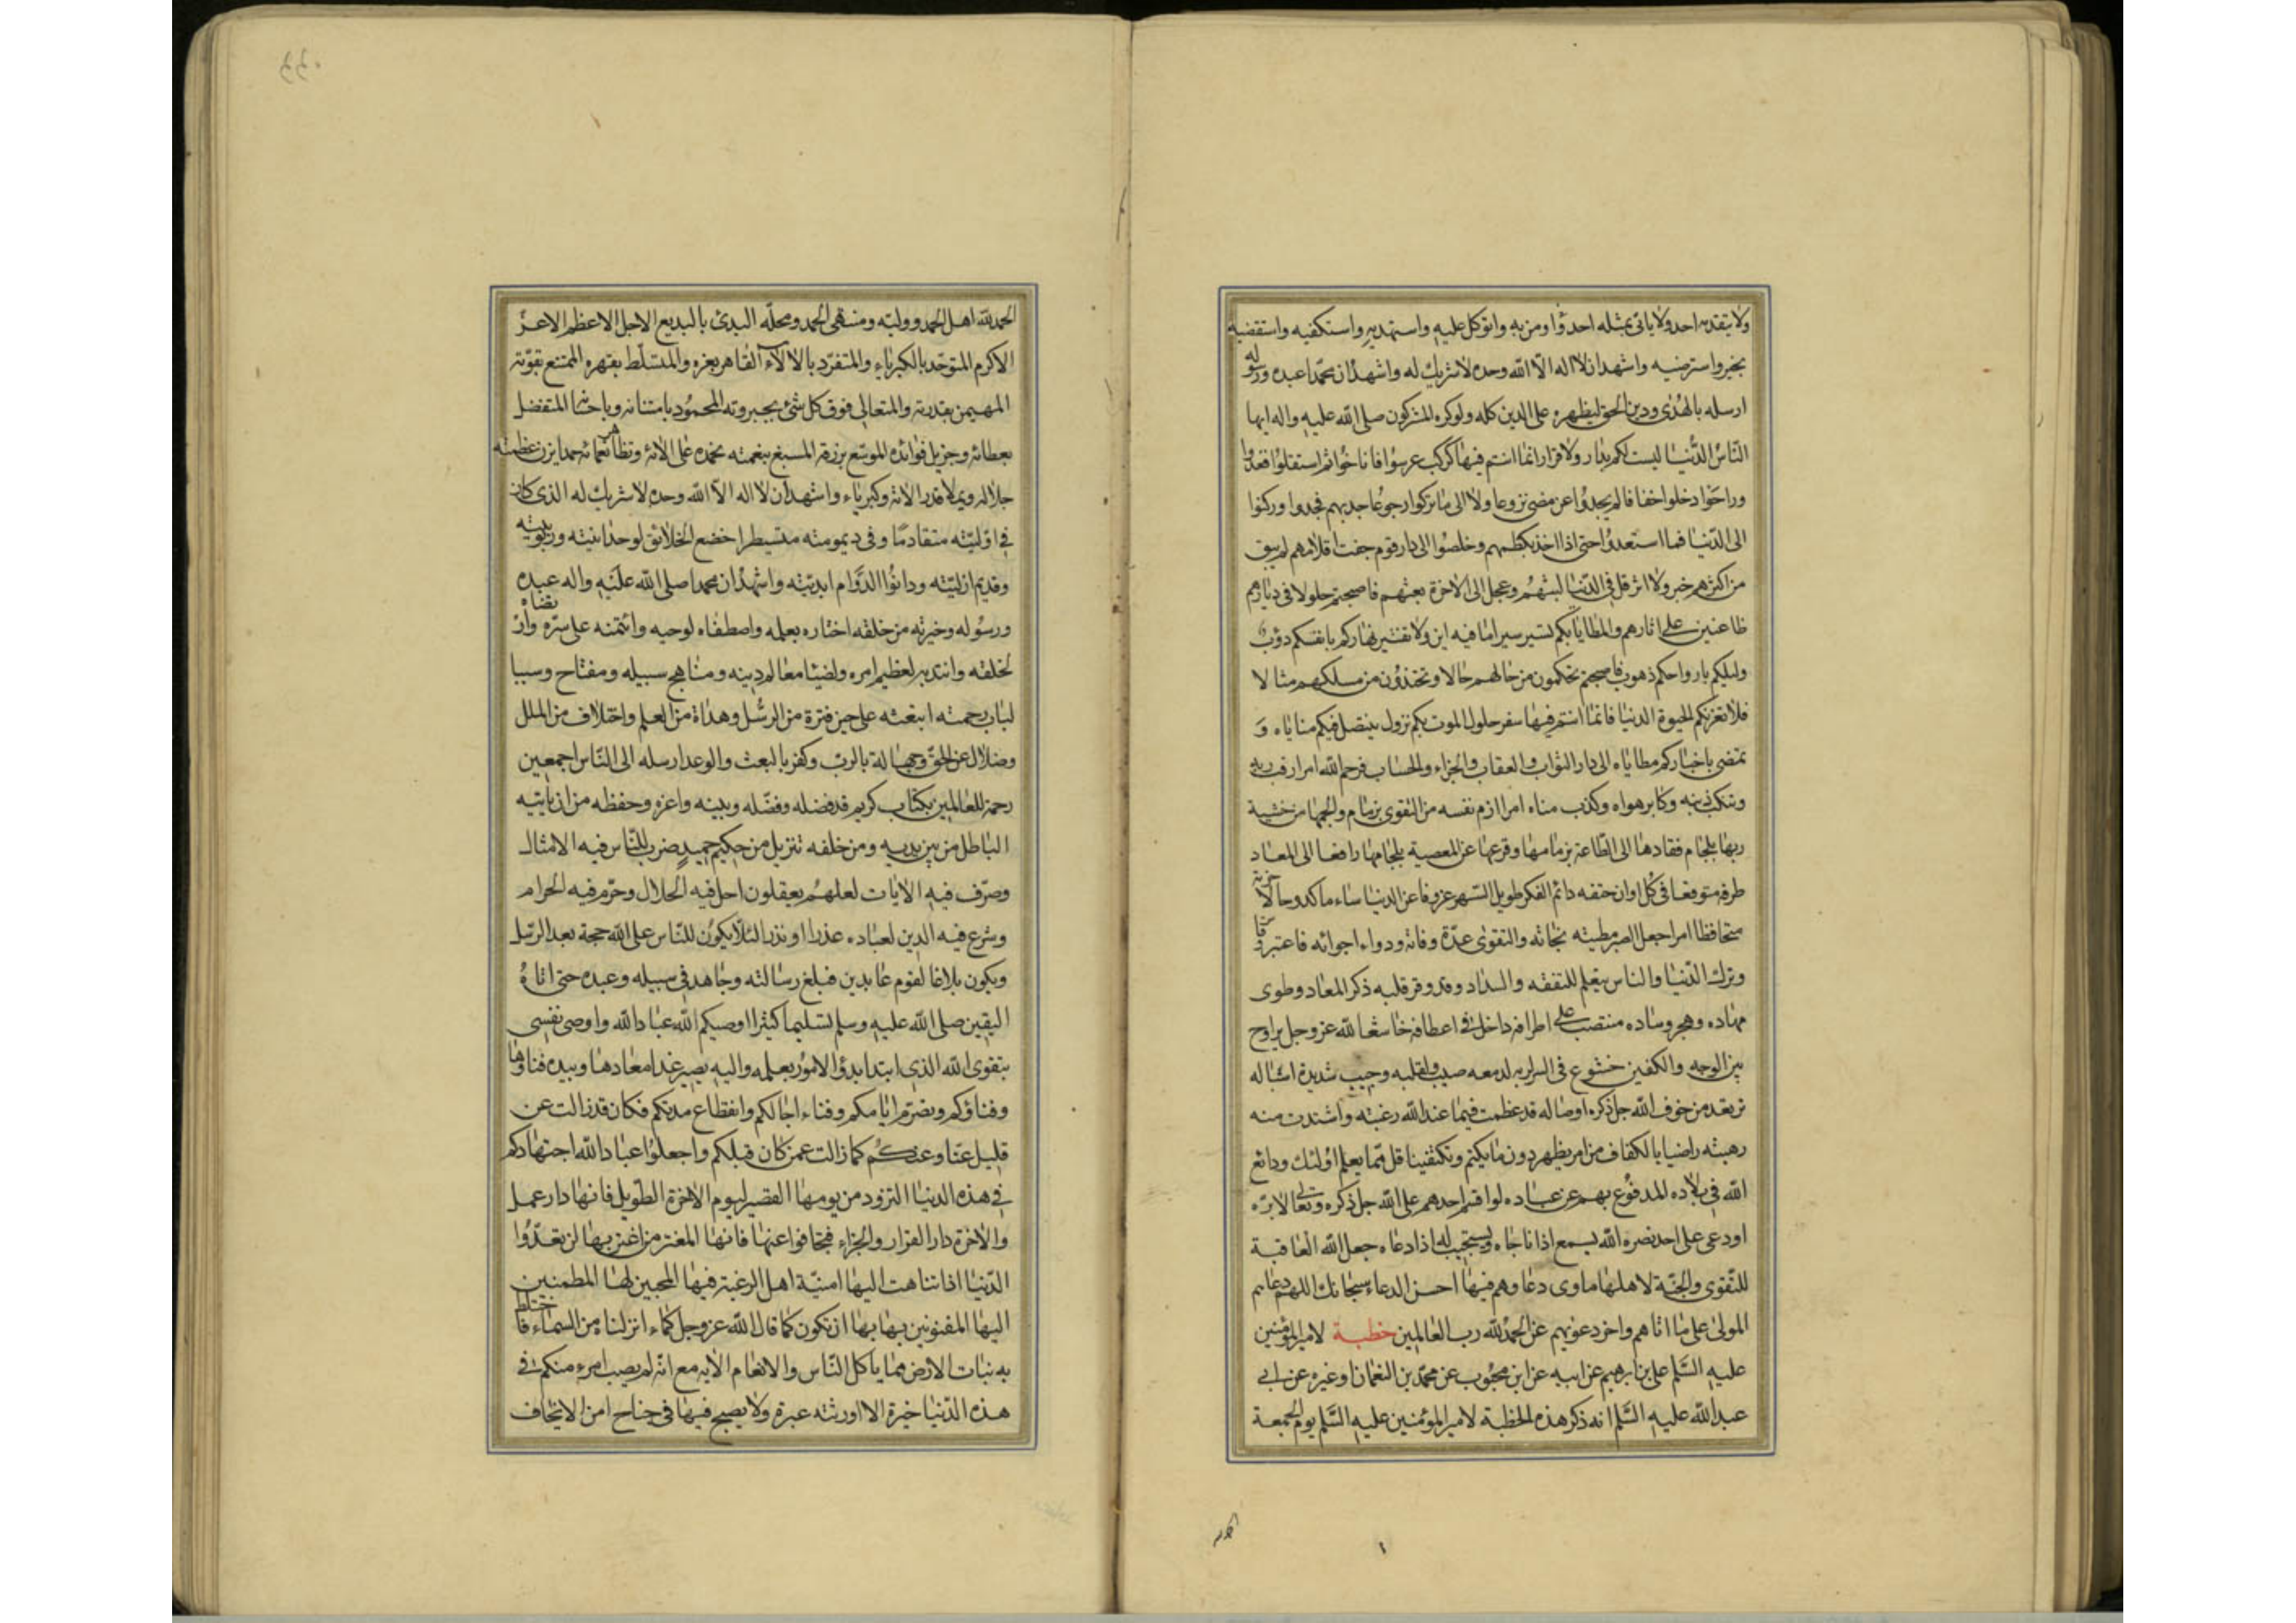 ولا يتقدمه احد ولا ياتى بمثله احد واومن به واتوكل عليه واستهديه واستكفيه واستقضيه
بخير واسترضيه واشهد ان لا اله الا الله وحده لا شريك له واشهد ان محمدا عبده ورسوله
ارسله بالهدى ودين الحق ليظهره على الدين كله ولو كره المشركون صلى الله عليه واله ايها
الناس الدنيا ليست لكم بدار ولا قرار انما انتم فيها كركب عرسوا فاناخوا ثم استقلوا فغدوا
وراحوا دخلوا خفافا لم يجدوا عن مضى نزوعا ولا الى ما تركوا رجوعا جد بهم فجدوا وركنوا
الى الدنيا فما استعدوا حتى اذا اخذ بكظمهم وخلصوا الى دار قوم جفت اقلامهم لم يبق
من اكثرهم خبر ولا اثر قل فى الدنيا لبثهم وعجل الى الاخرة بعثهم فاصبحتم حلولا فى ديارهم
ظاعنين على اثارهم والمطايا بكم تسير سيرا ما فيه اين ولا تفتير نهاركم بانفسكم دؤب
وليلكم بارواحكم ذهوب فاصبحتم تحكمون من حالهم حالا وتحتذون من مسلكهم مثالا
فلا تغرنكم الحيوة الدنيا فانما انتم فيها سفر حلول الموت بكم نزول ينتضل فيكم مناياه و
تمضى باخباركم مطاياه الى دار الثواب والعقاب والجزاء والحساب فرحم الله امرا رقب ربه
وتنكب ذنبه وكابر هواه وكذب مناه امرا ازم نفسه من التقوى بزمام والجمها من خشية
ربها بلجام فقادها الى الطاعة بزمامها وقرعها عن المعصية بلجامها رافعا الى المعاد
طرفه متوقعا فى كل اوان حتفه دائم الفكر طويل السهر عزوفا عن الدنيا ساء ما كدوحا لاخرته
متحافظا امرا جعل الصبر مطية نجاته والتقوى عدة وفاته ودواء اجوائه فاعتبر وقاس
وترك الدنيا والناس يتعلم للتفقه والسداد وقد وقر قلبه ذكر المعاد وطوى
مهاده وهجر وساده منتصب على اطرافه داخل فى اعطافه خاشعا لله عز وجل يراوح
بين الوجه والكفين خشوع فى السر لربه لدمعه صبيب ولقلبه وجيب شديدة اسباله
ترتعد من خوف الله جل ذكره اوصاله قد عظمت فيما عند الله رغبته واشتدت منه
رهبته راضيا بالكفاف من امر يظهر دون ما يكتم ويكتفى باقل مما يعلم اولئك ودائع
الله فى بلاده المدفوع بهم عن عباده لو اقسم احدهم على الله جل ذكره وتعالى لابره
او دعى على احد نصره الله يسمع اذا ناجاه ويستجيب له اذا دعاه جعل الله العاقبة
للتقوى والجنة لاهلها ماوى دعاوهم فيها احسن الدعاء سبحانك اللهم دعاهم
المولى على ما اتاهم واخر دعويهم عن الحمد لله رب العالمين خطبة لامير المؤمنين
عليه السلم على بن ابرهيم عن ابيه عن ابن محبوب عن محمد بن النعمان او غيره عن ابى
عبد الله عليه السلم انه ذكر هذه الخطبة لامير المؤمنين عليه السلم يوم الجمعة
الحمد لله اهل الحمد ووليه ومنتهى الحمد ومحله البدئ بالبديع الاجل الاعظم الاعز
الاكرم المتوحد بالكبرياء والمتفرد بالالآء القاهر بعزه والمتسلط بقهره الممتنع بقوته
المهيمن بقدرته والمتعالى فوق كل شئ بجبروته المحمود بامتنانه وباحسانه المتفضل
بعطائه وجزيل فوائده الموسع برزقه المسبغ بنعمته نحمده على الائه وتظاهر نعمائه حمدا يزن عظمته
جلاله ويملا قدر الائه وكبرياءه واشهد ان لا اله الا الله وحده لا شريك له الذى كان
فى اوليته متقادما وفى ديمومته متسيطرا خضع الخلائق لوحدانيته وربوبيته
وقديم ازليته ودانوا لدوام ابديته واشهد ان محمدا صلى الله عليه واله عبده
ورسوله وخيرته من خلقه اختاره بعلمه واصطفاه لوحيه وائتمنه على سره وارتضاه
لخلقه وانتدبه لعظيم امره ولضياء معالم دينه ومناهج سبيله ومفتاح وسببا
لباب رحمته ابتعثه على حين فترة من الرسل وهداة من العلم واختلاف من الملل
وضلال عن الحق وجهالة بالرب وكفر بالبعث والوعد ارسله الى الناس اجمعين
رحمة للعالمين بكتاب كريم قد فضله وفصله وبينه واعزه وحفظه من ان ياتيه
الباطل من بين يديه ومن خلفه تنزيل من حكيم حميد ضرب للناس فيه الامثال
وصرف فيه الايات لعلهم يعقلون احل فيه الحلال وحرم فيه الحرام
وشرع فيه الدين لعباده عذرا او نذرا لئلا يكون للناس على الله حجة بعد الرسل
ويكون بلاغا لقوم عابدين فبلغ رسالته وجاهد فى سبيله وعبده حتى اتاه
اليقين صلى الله عليه وسلم تسليما كثيرا اوصيكم الله عباد الله واوصى نفسى
بتقوى الله الذى ابتدا بدؤ الامور بعلمه واليه يصير غدا معادها وبيده فناوها
وفناؤكم وتصرم ايامكم وفناء اجالكم وانقطاع مدتكم فكان قد زالت عن
قليل عنا وعنكم كما زالت عمن كان قبلكم واجعلوا عباد الله اجتهادكم
فى هذه الدنيا التزود من يومها القصير ليوم الاخرة الطويل فانها دار عمل
والاخرة دار القرار والجزاء فتجافوا عنها فانها المغتر من اغتر بها لن تعدوا
الدنيا اذا تناهت اليها امنية اهل الرغبة فيها المحبين لها المطمئنين
اليها المفتونين بها بها ان تكون كما قال الله عز وجل كماء انزلناه من السماء فاختلط
به نبات الارض مما ياكل الناس والانعام الايه مع انه لم يصب امرء منكم فى
هذه الدنيا خيرة الا اورثته عبرة ولا يصبح فيها فى جناح امن الا يخاف